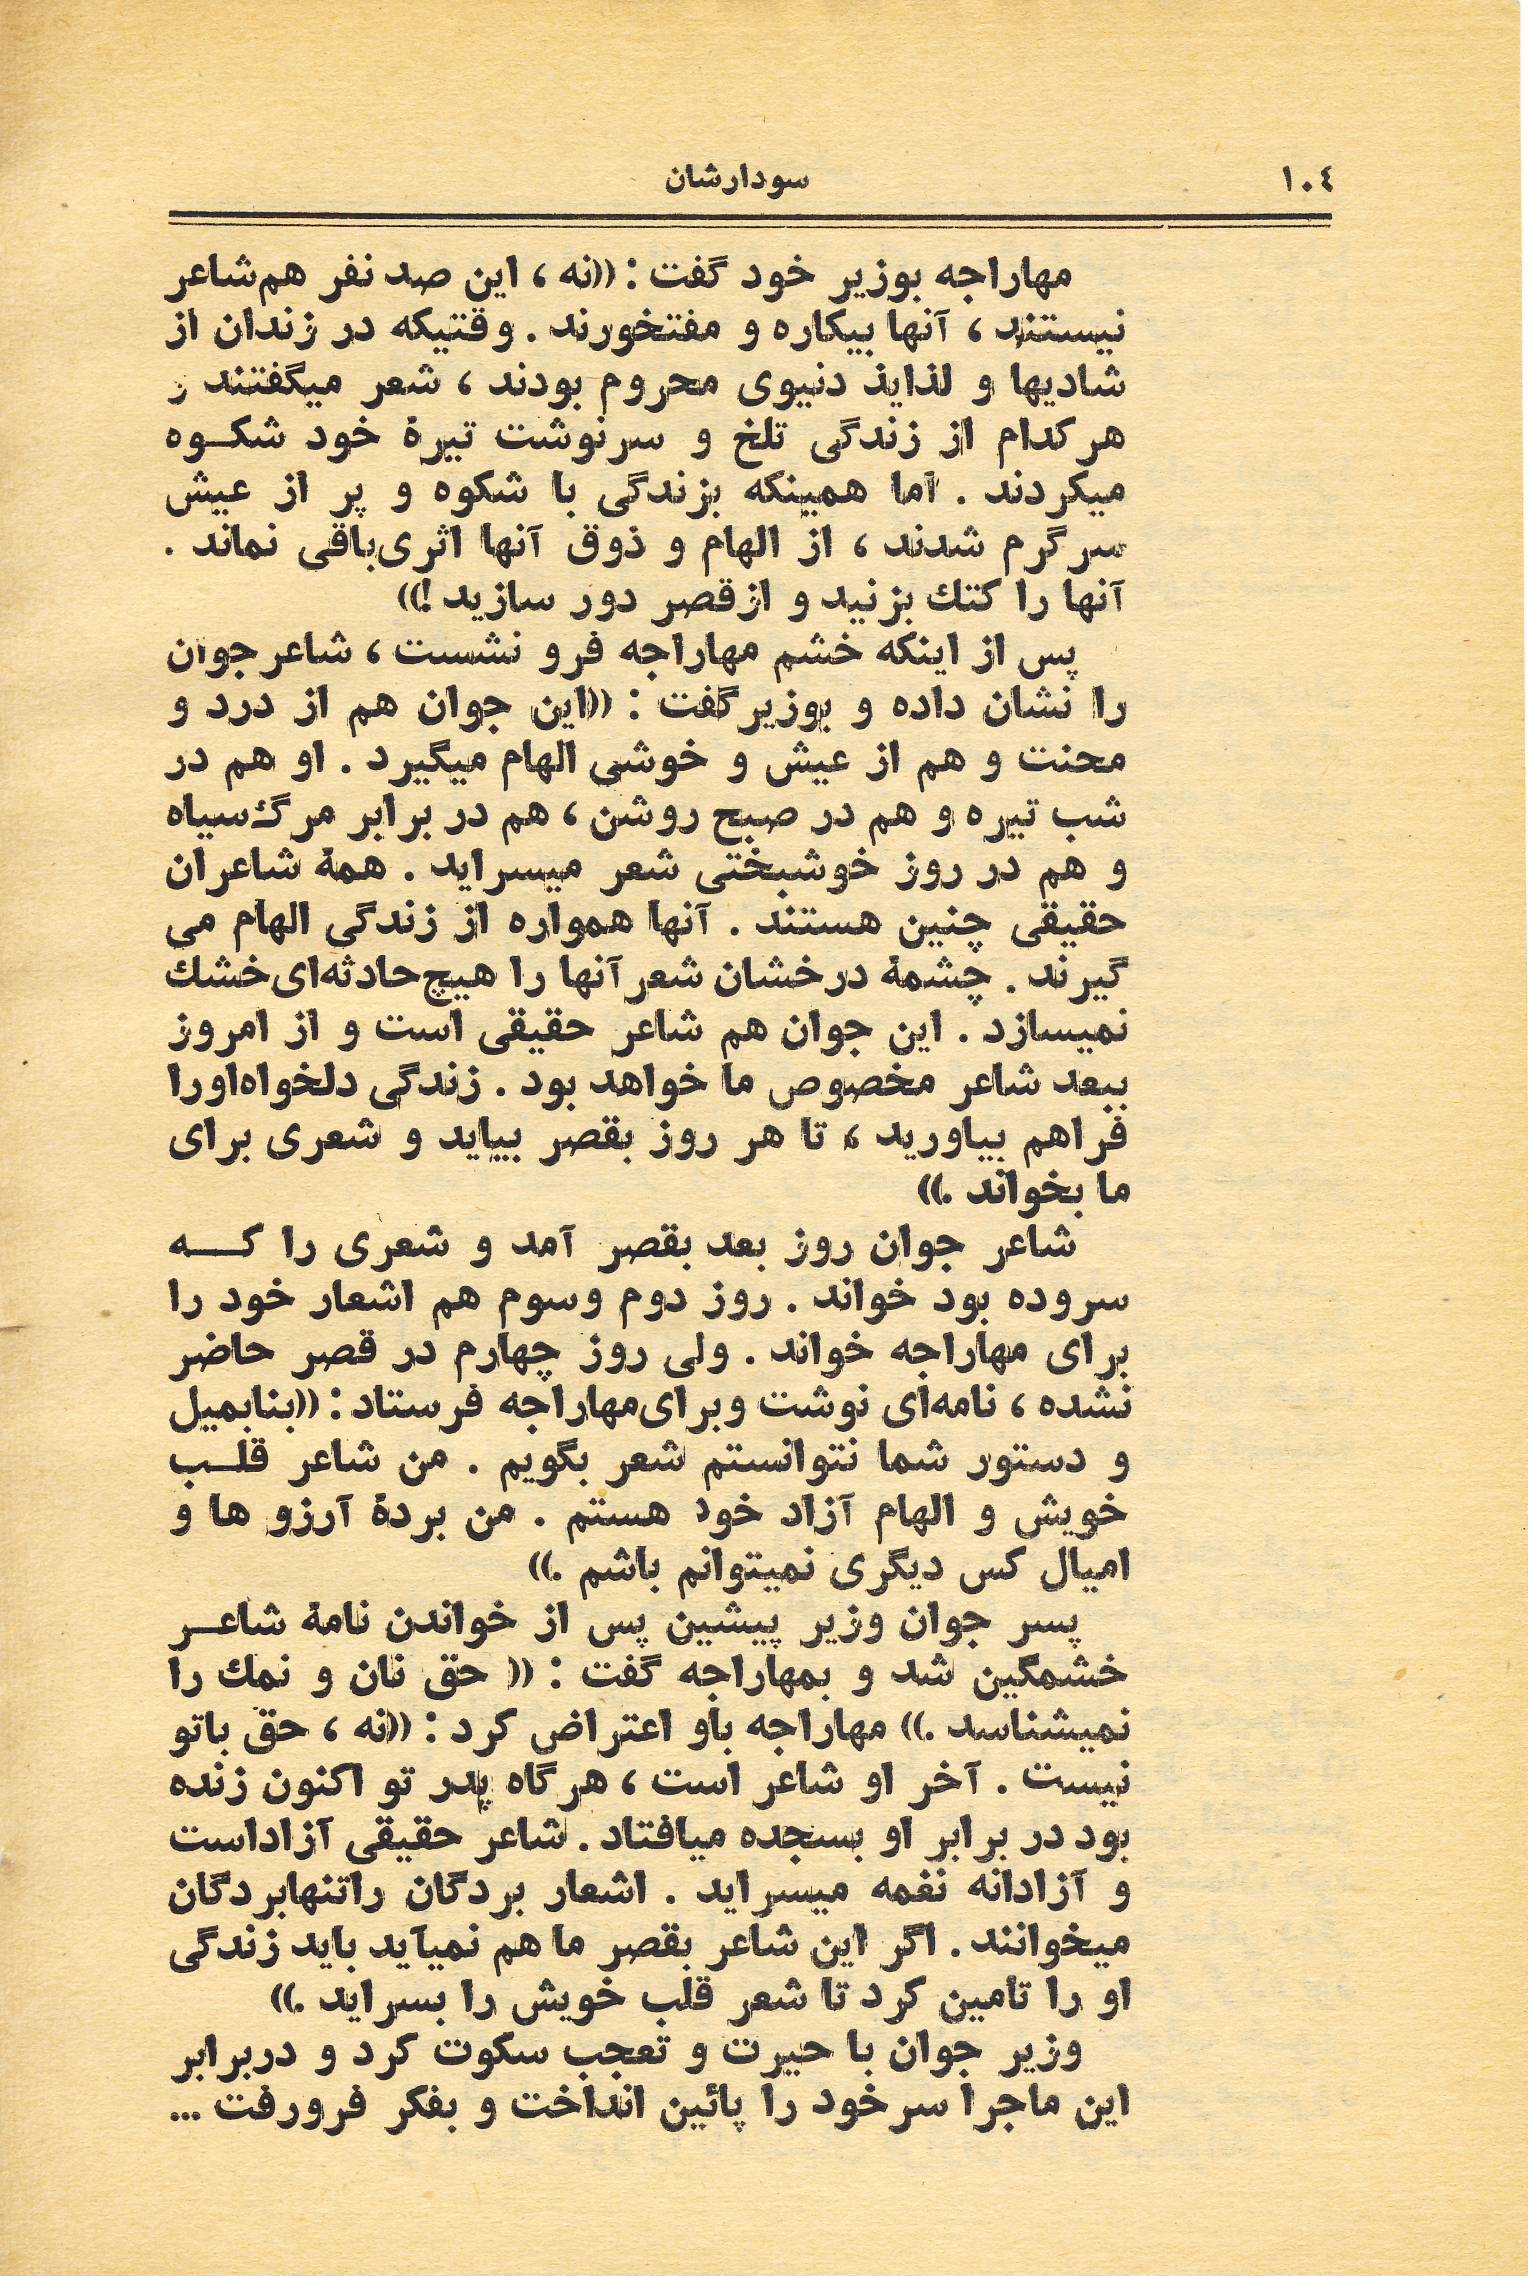 ۱۰٤
سودارشان
مهاراجه بوزیر خود گفت : ((نه ، این صد نفر هم‌شاعر
نیستند ، آنها بیکاره و مفتخورند . وقتیکه در زندان از
شادیها و لذایذ دنیوی محروم بودند ، شعر میگفتند و
هرکدام از زندگی تلخ و سرنوشت تیرهٔ خود شکـوه
میکردند . اما همینکه بزندگی با شکوه و پر از عیش
سرگرم شدند ، از الهام و ذوق آنها اثری‌باقی نماند .
آنها را کتك بزنید و از‌قصر دور سازید !))
پس از اینکه خشم مهاراجه فرو نشست ، شاعر جوان
را نشان داده و بوزیر‌گفت : ((این جوان هم از درد و
محنت و هم از عیش و خوشی الهام میگیرد . او هم در
شب تیره و هم در صبح روشن ، هم در برابر مرگ‌سیاه
و هم در روز خوشبختی شعر میسراید . همهٔ شاعران
حقیقی چنین هستند . آنها همواره از زندگی الهام می
گیرند . چشمهٔ درخشان شعر آنها را هیچ‌حادثه‌ای‌خشك
نمیسازد . این جوان هم شاعر حقیقی است و از امروز
ببعد شاعر مخصوص ما خواهد بود . زندگی دلخواه‌او‌را
فراهم بیاورید ، تا هر روز بقصر بیاید و شعری برای
ما بخواند .))
شاعر جوان روز بعد بقصر آمد و شعری را کــه
سروده بود خواند . روز دوم وسوم هم اشعار خود را
برای مهاراجه خواند . ولی روز چهارم در قصر حاضر
نشده ، نامه‌ای نوشت وبرای‌مهاراجه فرستاد : ((بنابمیل
و دستور شما نتوانستم شعر بگویم . من شاعر قلـب
خویش و الهام آزاد خود هستم . من بردهٔ آرزو ها و
امیال کس دیگری نمیتوانم باشم .))
پسر جوان وزیر پیشین پس از خواندن نامهٔ شاعـر
خشمگین شد و بمهاراجه گفت : (( حق نان و نمك را
نمیشناسد .)) مهاراجه باو اعتراض کرد : ((نه ، حق باتو
نیست . آخر او شاعر است ، هرگاه پدر تو اکنون زنده
بود در برابر او بسجده میافتاد . شاعر حقیقی آزاد‌است
و آزادانه نغمه میسراید . اشعار بردگان را‌تنها‌بردگان
میخوانند . اگر این شاعر بقصر ما هم نمیآید باید زندگی
او را تامین کرد تا شعر قلب خویش را بسراید .))
وزیر جوان با حیرت و تعجب سکوت کرد و دربرابر
این ماجرا سر‌خود را پائین انداخت و بفکر فرو‌رفت ...